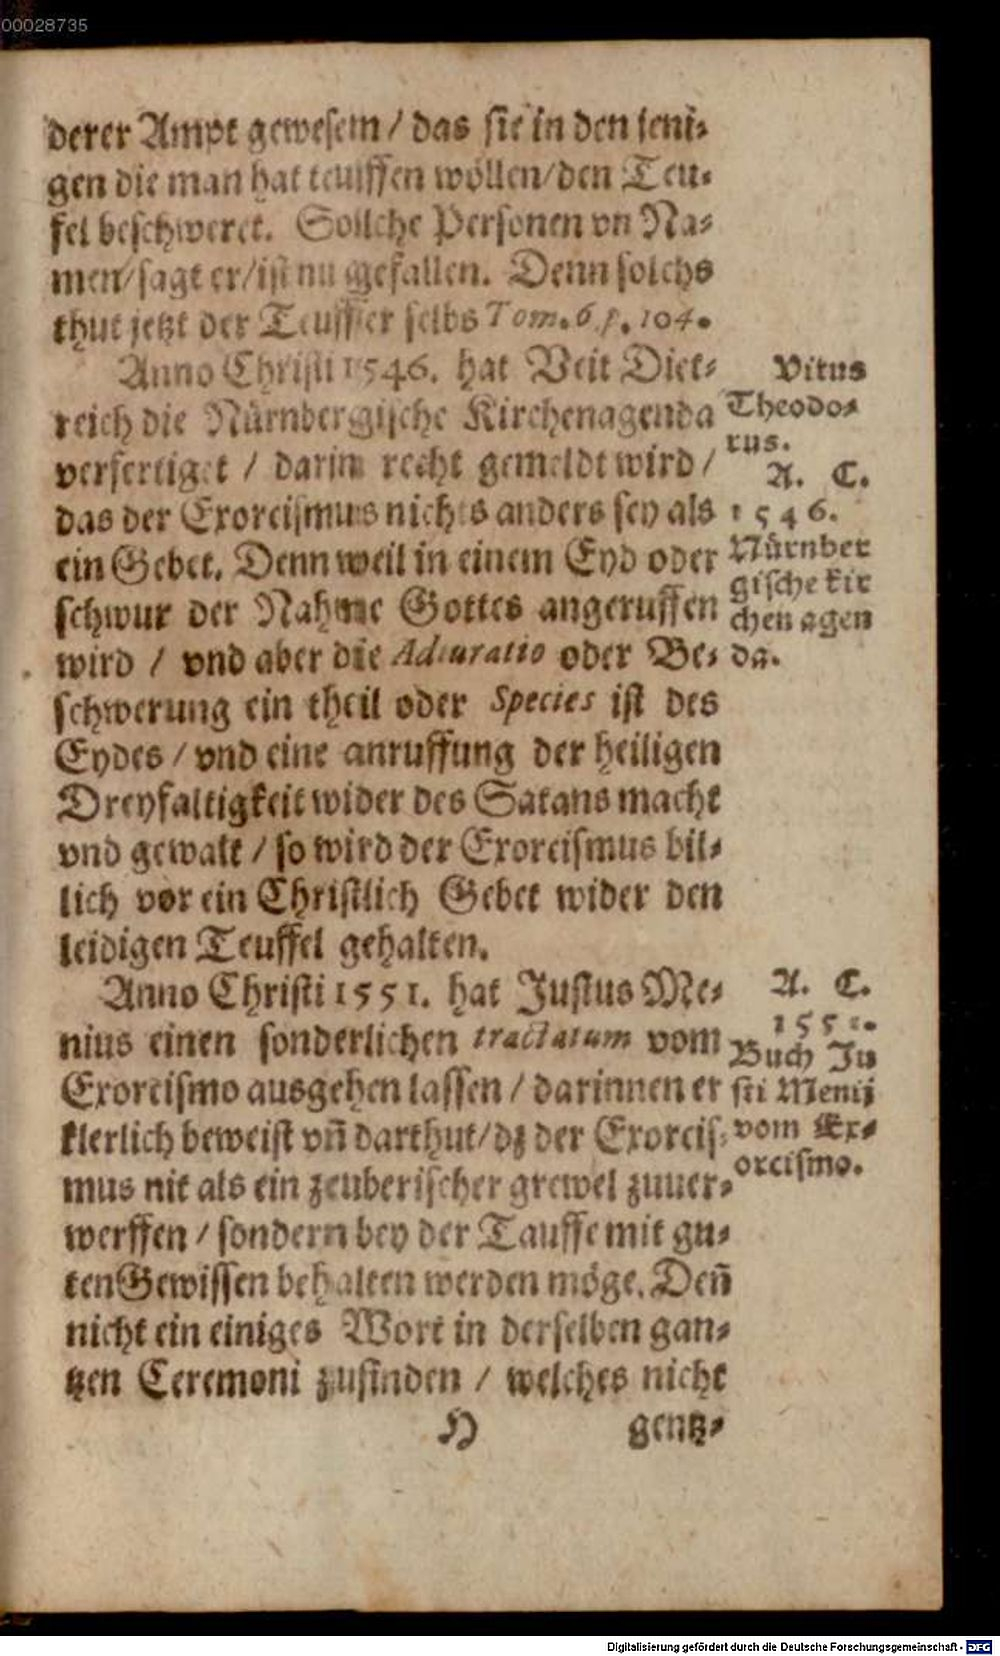 00028735
derer Ampt gewesem / das sie in den jeni-
gen die man hat teuffen wöllen/den Teu-
fel beschweret. Sollche Personen vn Na-
men/sagt er/ist nu gefallen. Denn solchs
thut jetzt der Teuffler selbs Tom. 6. p. 104.
Anno Christi 1546. hat Veit Diet-
reich die Nürnbergische Kirchenagenda
verfertiget / darin recht gemeldt wird /
das der Exorcismus nichts anders sey als
ein Gebet. Denn weil in einem Eyd oder
schwur der Nahme Gottes angeruffen
wird / vnd aber die Adiuratio oder Be-
schwerung ein theil oder Species ist des
Eydes / vnd eine anruffung der heiligen
Dreyfaltigkeit wider des Satans macht
vnd gewalt / so wird der Exorcismus bil-
lich vor ein Christlich Gebet wider den
leidigen Teuffel gehalten.
Anno Christi 1551. hat Justus Me-
nius einen sonderlichen tractatum vom
Exorcismo ausgehen lassen / darinnen er
klerlich beweist vñ darthut/dz der Exorcis-
mus nit als ein zeuberischer grewel zuuer-
werffen / sondern bey der Tauffe mit gu-
ten Gewissen behalten werden möge. Deñ
nicht ein einiges Wort in derselben gan-
tzen Ceremoni zufinden / welches nicht
H gentz-
Vitus
Theodo-
rus.
A. C.
1546.
Nürnber
gische kir
chen agen
da.
A. C.
1551.
Buch Ju
sti Menij
vom Ex-
orcismo.
Digitalisierung gefördert durch die Deutsche Forschungsgemeinschaft - DFG